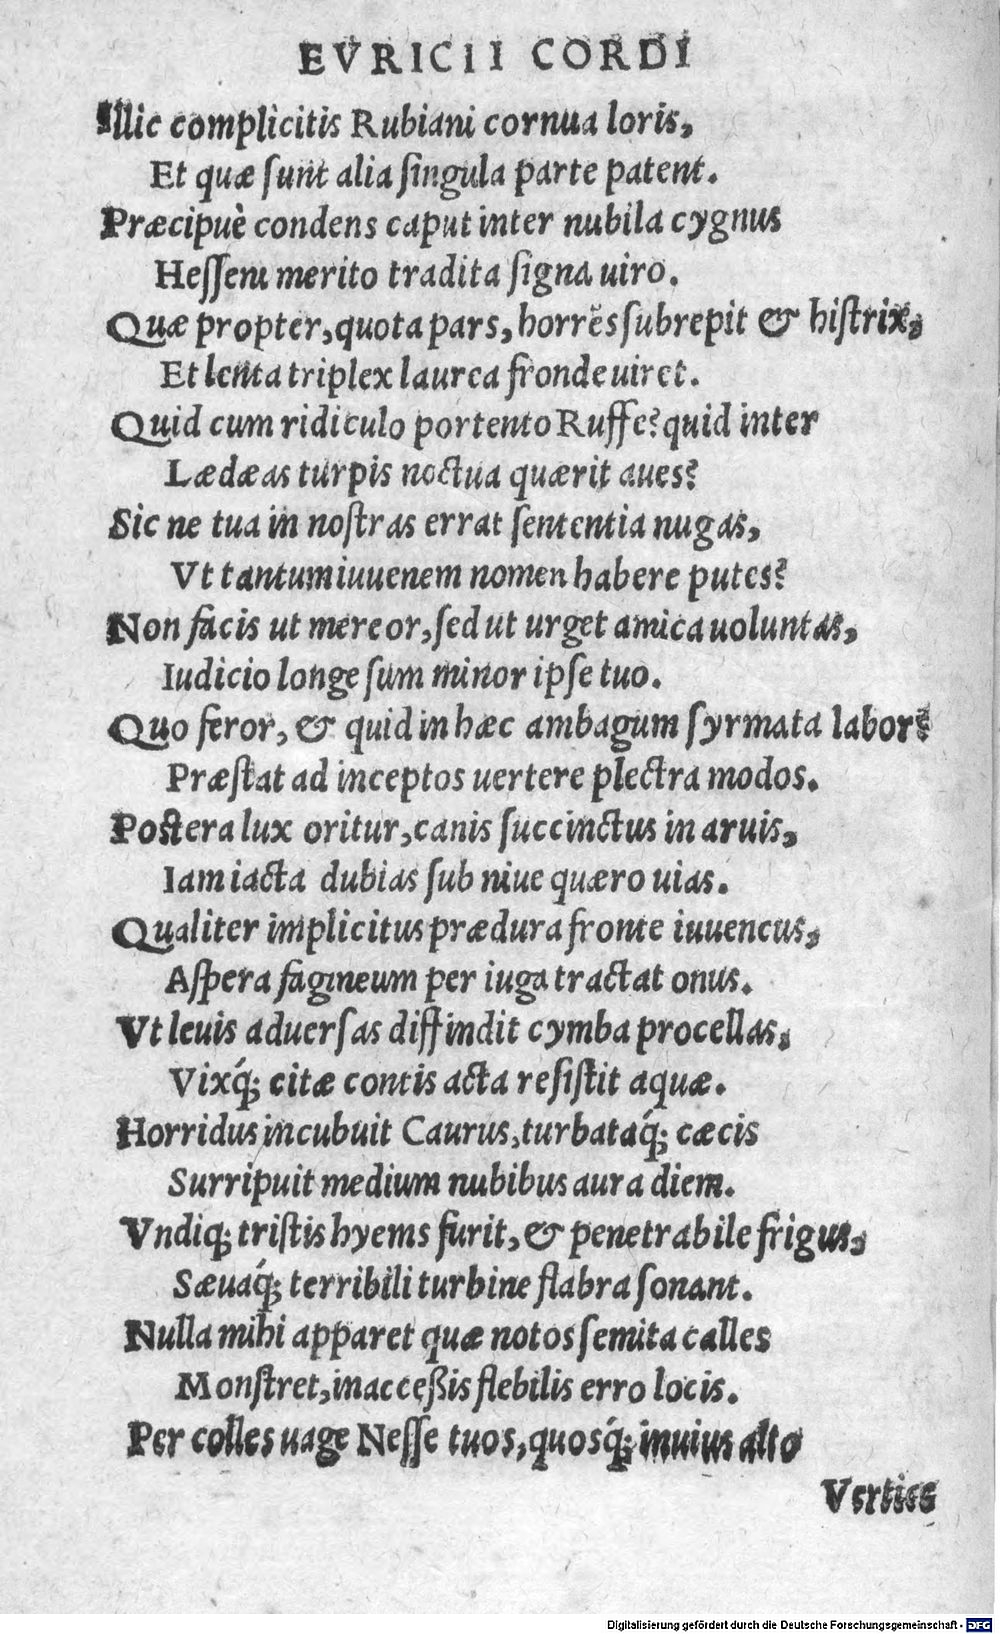 EVRICII CORDI
Illic complicitis Rubiani cornua loris,
Et quæ ſunt alia ſingula parte patent.
Præcipuè condens caput inter nubila cygnus
Heſſeni merito tradita ſigna uiro.
Quæ propter, quota pars, horrēs ſubrepit & hiſtrix,
Et lenta triplex laurea fronde uiret.
Quid cum ridiculo portento Ruffe? quid inter
Lædæas turpis noctua quærit aues?
Sic ne tua in noſtras errat ſententia nugas,
Vt tantum iuuenem nomen habere putes?
Non facis ut mereor, ſed ut urget amica uoluntas,
Iudicio longe ſum minor ipſe tuo.
Quo feror, & quid in hæc ambagum ſyrmata labor?
Præſtat ad inceptos uertere plectra modos.
Poſtera lux oritur, canis ſuccinctus in aruis,
Iam iacta dubias ſub niue quæro uias.
Qualiter implicitus prædura fronte iuuencus,
Aſpera fagineum per iuga tractat onus.
Vt leuis aduerſas diffindit cymba procellas,
Vixq́; citæ contis acta reſiſtit aquæ.
Horridus incubuit Caurus, turbataq́; cæcis
Surripuit medium nubibus aura diem.
Vndiq; triſtis hyems furit, & penetrabile frigus,
Sæuaq́; terribili turbine flabra ſonant.
Nulla mihi apparet quæ notos ſemita calles
Monſtret, inacceßis flebilis erro locis.
Per colles uage Neſſe tuos, quosq́; inuius alto
Vertice
Digitalisierung gefördert durch die Deutsche Forschungsgemeinschaft - DFG